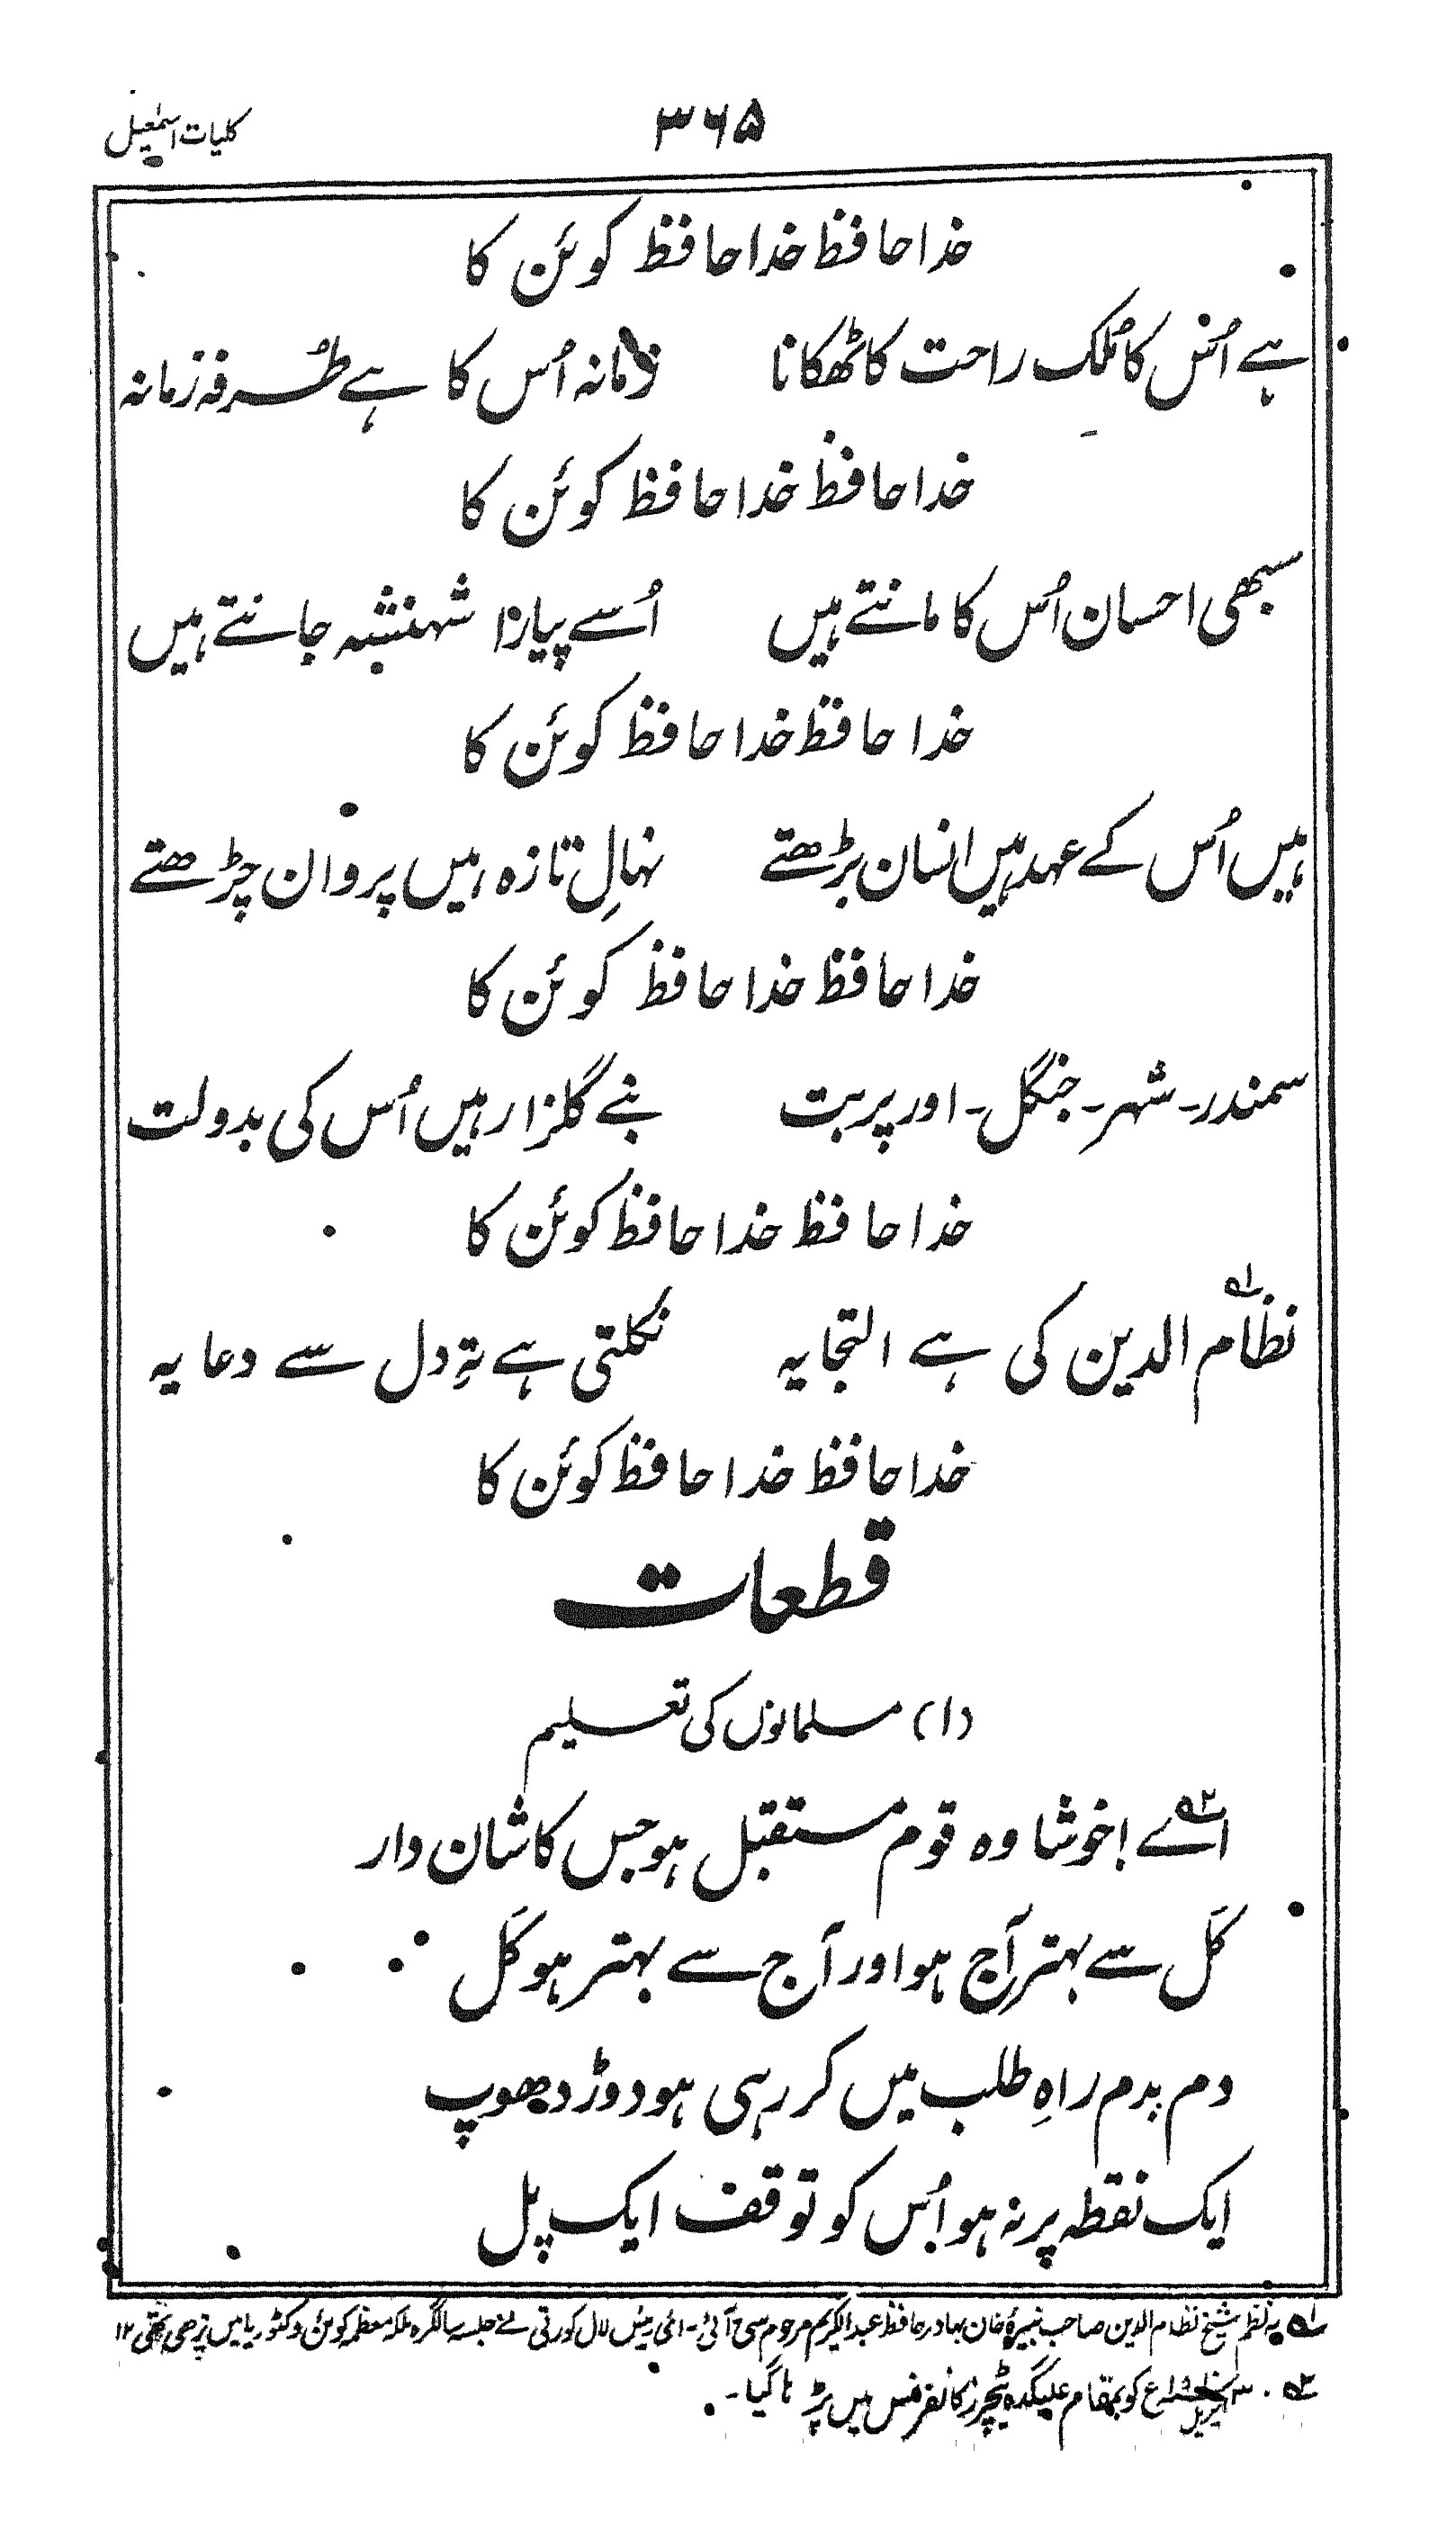 کلیات اسمٰعیل
۳۶۵
خدا حافظ خدا حافظ کوئن کا
ہے اُس کا مُلک راحت کا ٹھکانا زمانہ اُس کا ہے طُرفہ زمانہ
خدا حافظ خدا حافظ کوئن کا
سبھی احسان اُس کا مانتے ہیں اُسے پیارا شہنشہ جانتے ہیں
خدا حافظ خدا حافظ کوئن کا
ہیں اُس کے عہد میں انسان بڑھتے نہالِ تازہ ہیں پروان چڑھتے
خدا حافظ خدا حافظ کوئن کا
سمندر۔ شہر۔ جنگل۔ اور پربت بنے گلزار ہیں اُس کی بدولت
خدا حافظ خدا حافظ کوئن کا
نظام الدین کی ہے التجا یہ ۱؎ نکلتی ہے تہِ دل سے دعا یہ
خدا حافظ خدا حافظ کوئن کا
قطعات
(۱) مسلمانوں کی تعلیم
اے ۲؎ خوشا وہ قوم مستقبل ہو جس کا شان دار
کَل سے بہتر آج ہو اور آج سے بہتر ہو کَل
دم بدم راہِ طلب میں کر رہی ہو دوڑ دھوپ
ایک نقطہ پر نہ ہو اُس کو توقف ایک پل
۱؎ یہ نظم شیخ نظام الدین صاحب نبیرۂ خان بہادر حافظ عبدالکریم مرحوم سی آئی۔ ائی رئیس لال کورتی نے جلسہ سالگرہ ملکہ معظمہ کوئن وکٹوریا میں پڑھی تھی ۱۲
۲؎ اپریل ء کو بمقام علیگڈہ ٹیچرز کانفرنس میں پڑہا گیا۔